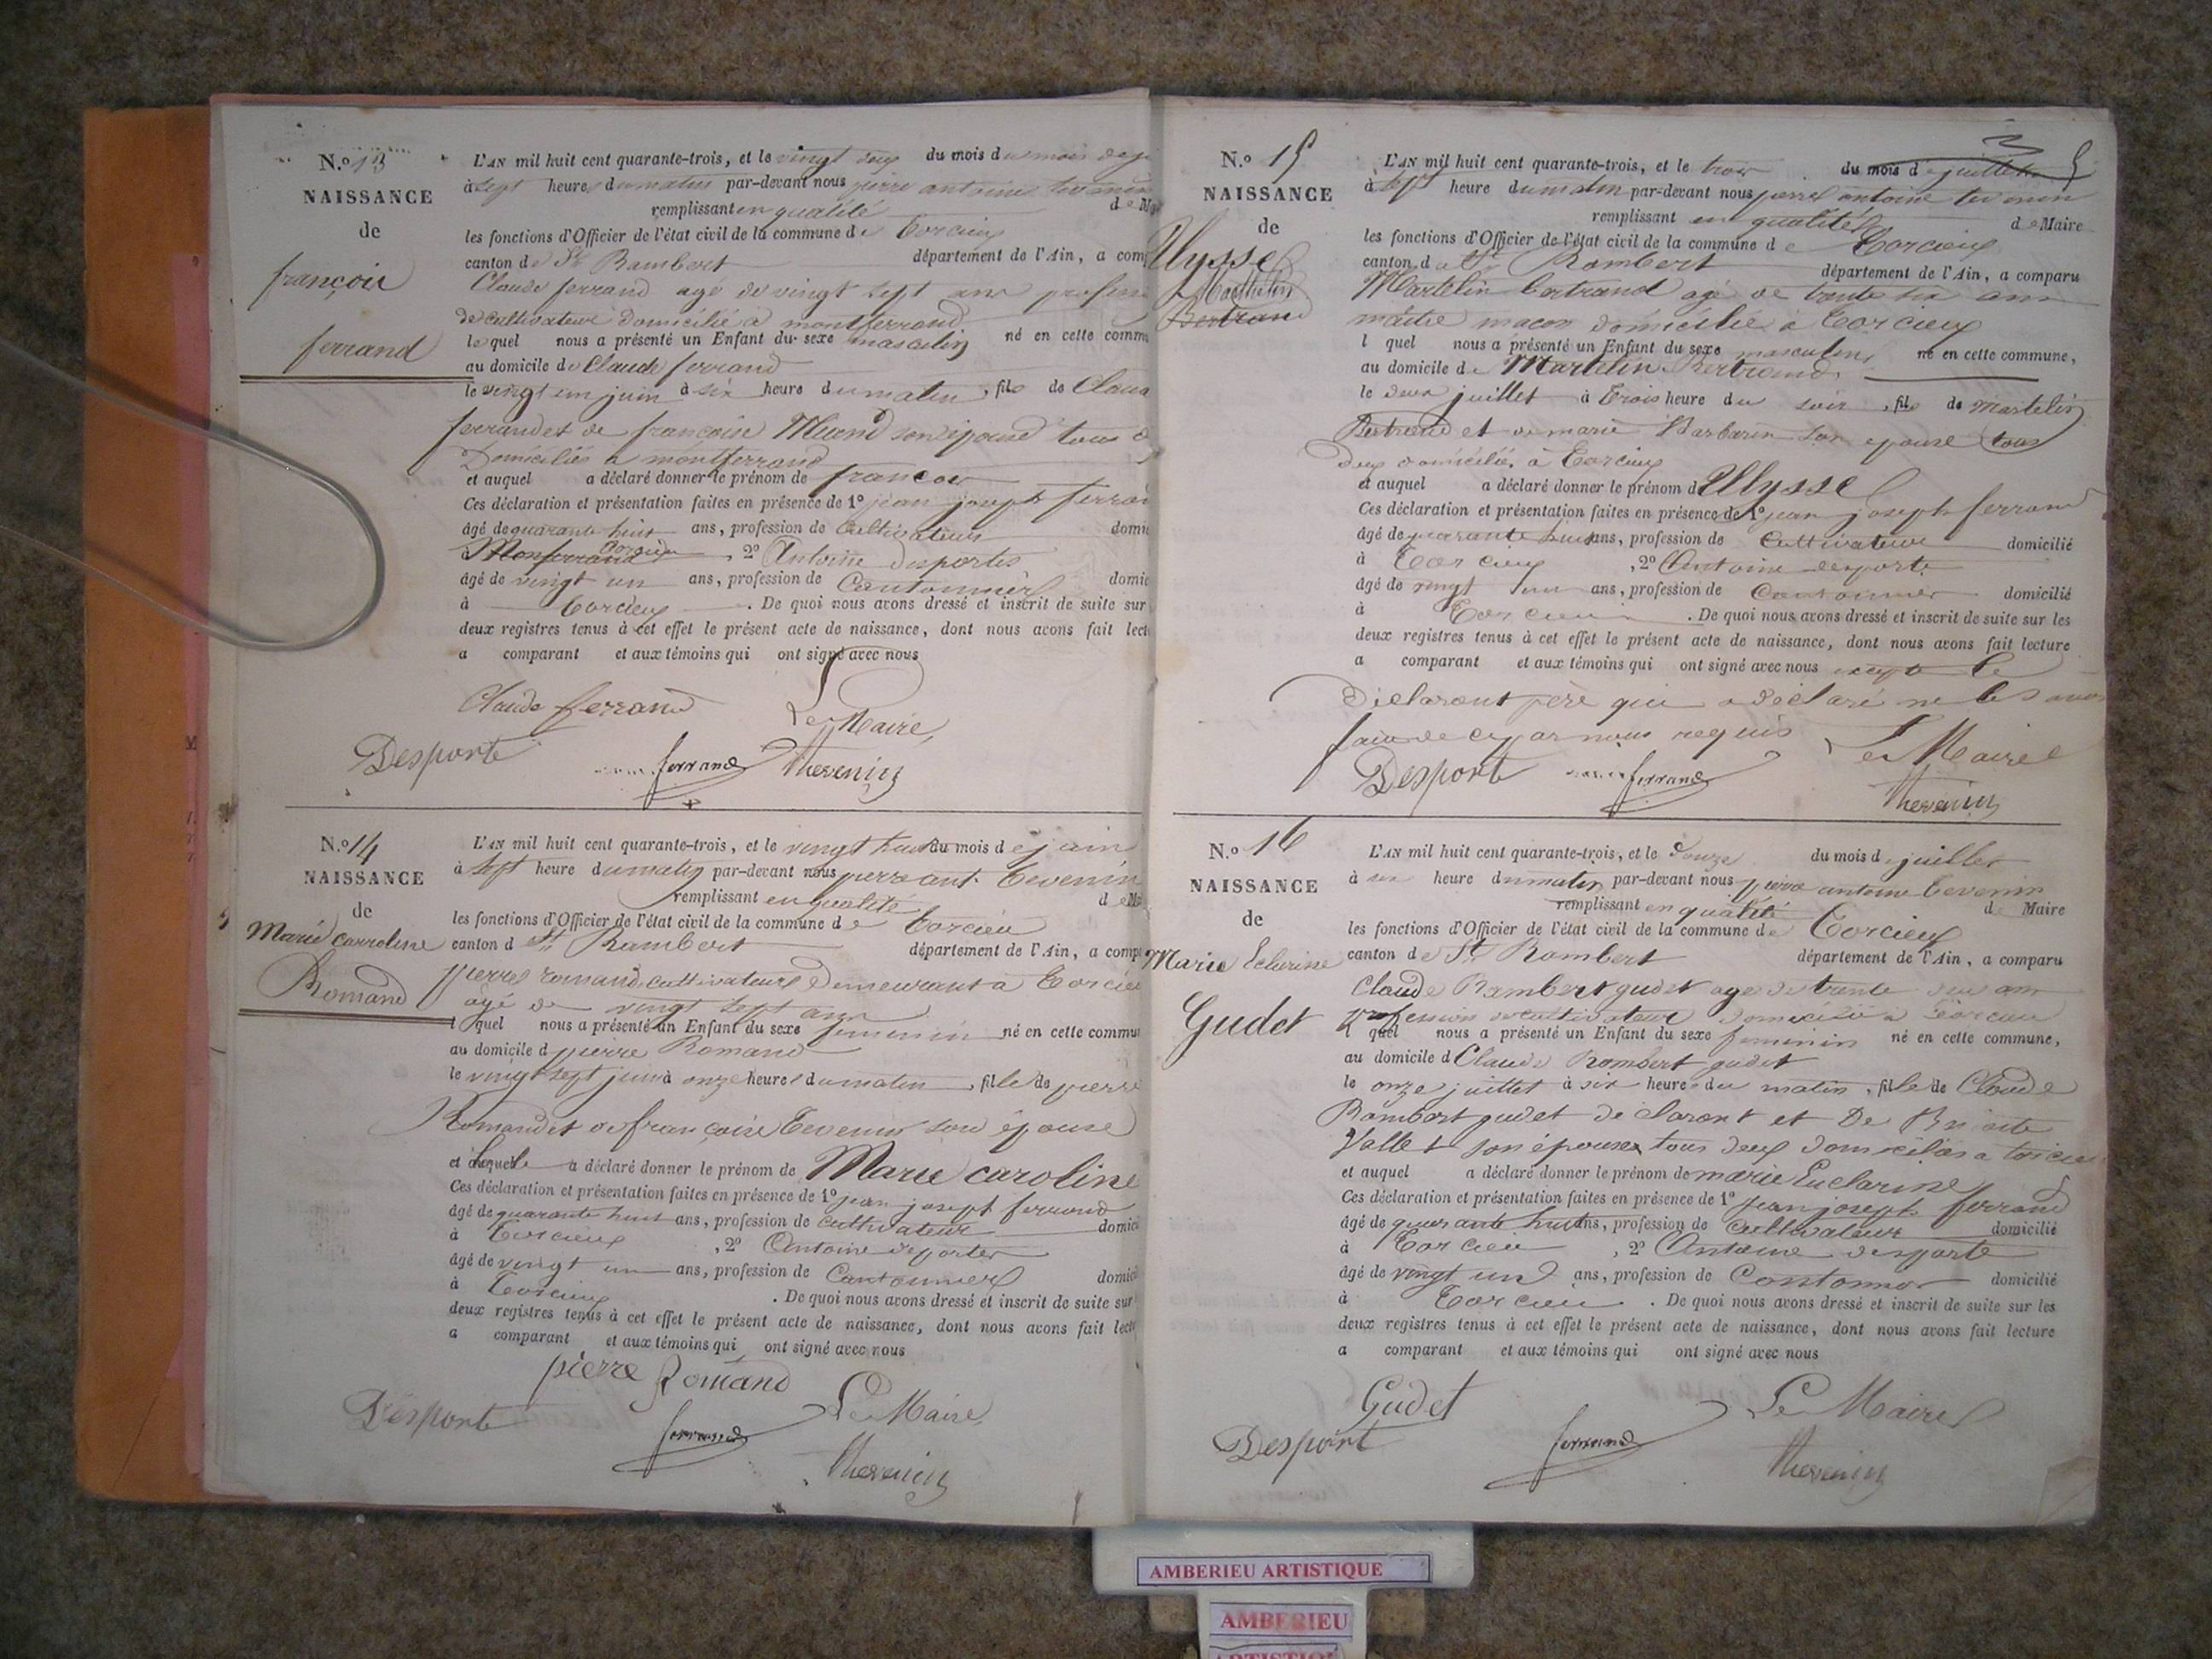 N.o 13
NAISSANCE
de
françois
ferrand
L'AN mil huit cent quarante-trois, et le vingt deux du mois du mois de
à sept heures du matin par-devant nous pierre antoine tevenin
remplissant en qualité de
les fonctions d'Officier de l'état civil de la commune de torcieu
canton de St Rambert département de l'Ain, a com
Claude ferrand agé de vingt sept ans
de cultivateur domicilié a montferrand
lequel nous a présenté un Enfant du sexe masculin né en cette comm
au domicile de Claude ferrand
le vingt un juin à six heure du matin, fils de Claud
ferrand et de françoise son épouse tous
Domiciliés a montferrand
et auquel a déclaré donner le prénom de françois
Ces déclaration et présentation faites en présence de 1º jean joseph ferran
âgé de quarante huit ans, profession de Cultivateur domic
à Monferrand torcieu, 2º Antoine desportes
âgé de vingt un ans, profession de Cantonnier domic
à torcieu. De quoi nous avons dressé et inscrit de suite sur
deux registres tenus à cet effet le présent acte de naissance, dont nous avons fait lect
a comparant et aux témoins qui ont signé avec nous
Claude ferrand Le Maire,
Desporte ferrand Thevenin
N.o 14
NAISSANCE
de
Marie carroline
Romand
L'AN mil huit cent quarante-trois, et le vingt huit du mois de juin
à sept heure du matin par-devant nous pierre ant. tevenin
remplissant en qualité de
les fonctions d'Officier de l'état civil de la commune de torcieu
canton d St Rambert département de l'Ain, a comp
pierre romand cultivateur demeurant a torcieu
agé de vingt sept ans
l quel nous a présenté un Enfant du sexe feminin né en cette commu
au domicile d pierre Romand
le vingt sept juin à onze heures du matin, fille de pierre
Romand et de françoise tevenin son épouse
et à laquelle a déclaré donner le prénom de Marie caroline
Ces déclaration et présentation faites en présence de 1º jean joseph ferrand
âgé de quarante huit ans, profession de cultivateur domici
à torcieu, 2º Antoine desportes
âgé de vingt un ans, profession de Cantonnier domici
à torcieu. De quoi nous avons dressé et inscrit de suite sur
deux registres tenus à cet effet le présent acte de naissance, dont nous avons fait lectu
a comparant et aux témoins qui ont signé avec nous
pierre Romand
Desporte ferrand Le Maire,
Thevenin
N.o 15
NAISSANCE
de
Ulysse
Martelin
Bertrand
5
L'AN mil huit cent quarante-trois, et le trois du mois de juillet
à sept heure du matin par-devant nous pierre antoine tevenin
remplissant en qualité de Maire
les fonctions d'Officier de l'état civil de la commune de torcieu
canton de St Rambert département de l'Ain, a comparu
Martelin bertrand agé de trente six ans
maitre maçon domicilié à torcieu
l quel nous a présenté un Enfant du sexe masculin né en cette commune,
au domicile de Martelin Bertrand
le deux juillet à trois heure du soir, fils de martelin
Bertrand et de marie Barbarin son epouse tous
deux domiciliés à torcieu
et auquel a déclaré donner le prénom d Ulysse
Ces déclaration et présentation faites en présence de 1º jean joseph ferrand
âgé de quarante huit ans, profession de Cultivateur domicilié
à torcieu, 2º Antoine desporte
âgé de vingt un ans, profession de Cantonnier domicilié
à torcieu. De quoi nous avons dressé et inscrit de suite sur les
deux registres tenus à cet effet le présent acte de naissance, dont nous avons fait lecture
a comparant et aux témoins qui ont signé avec nous excepté le
Déclarant père qui a déclaré ne le savoir
faire de ce par nous requis Le Maire
Desporte ferrand
Thevenin
N.o 16
NAISSANCE
de
Marie Eclarisse
Gudet
L'AN mil huit cent quarante-trois, et le douze du mois d juillet
à six heure du matin par-devant nous pierre antoine tevenin
remplissant en qualité de Maire
les fonctions d'Officier de l'état civil de la commune de torcieu
canton de St Rambert département de l'Ain, a comparu
Claude Rambert gudet age de trente ans
profession de cultivateur domicilié a torcieu
l quel nous a présenté un Enfant du sexe feminin né en cette commune,
au domicile d Claude Rambert gudet
le onze juillet à six heures du matin, fille de Claude
Rambert gudet declarant et De
Vallet son épouse tous deux domiciliés a torcieu
et auquel a déclaré donner le prénom de marie Euclarisse
Ces déclaration et présentation faites en présence de 1º jean joseph ferrand
âgé de quarante huit ans, profession de cultivateur domicilié
à torcieu, 2º Antoine desporte
âgé de vingt un ans, profession de Cantonnier domicilié
à torcieu. De quoi nous avons dressé et inscrit de suite sur les
deux registres tenus à cet effet le présent acte de naissance, dont nous avons fait lecture
a comparant et aux témoins qui ont signé avec nous
Gudet Le Maire
Desport ferrand
Thevenin
AMBERIEU ARTISTIQUE
AMBERIEU
ARTISTIQUE